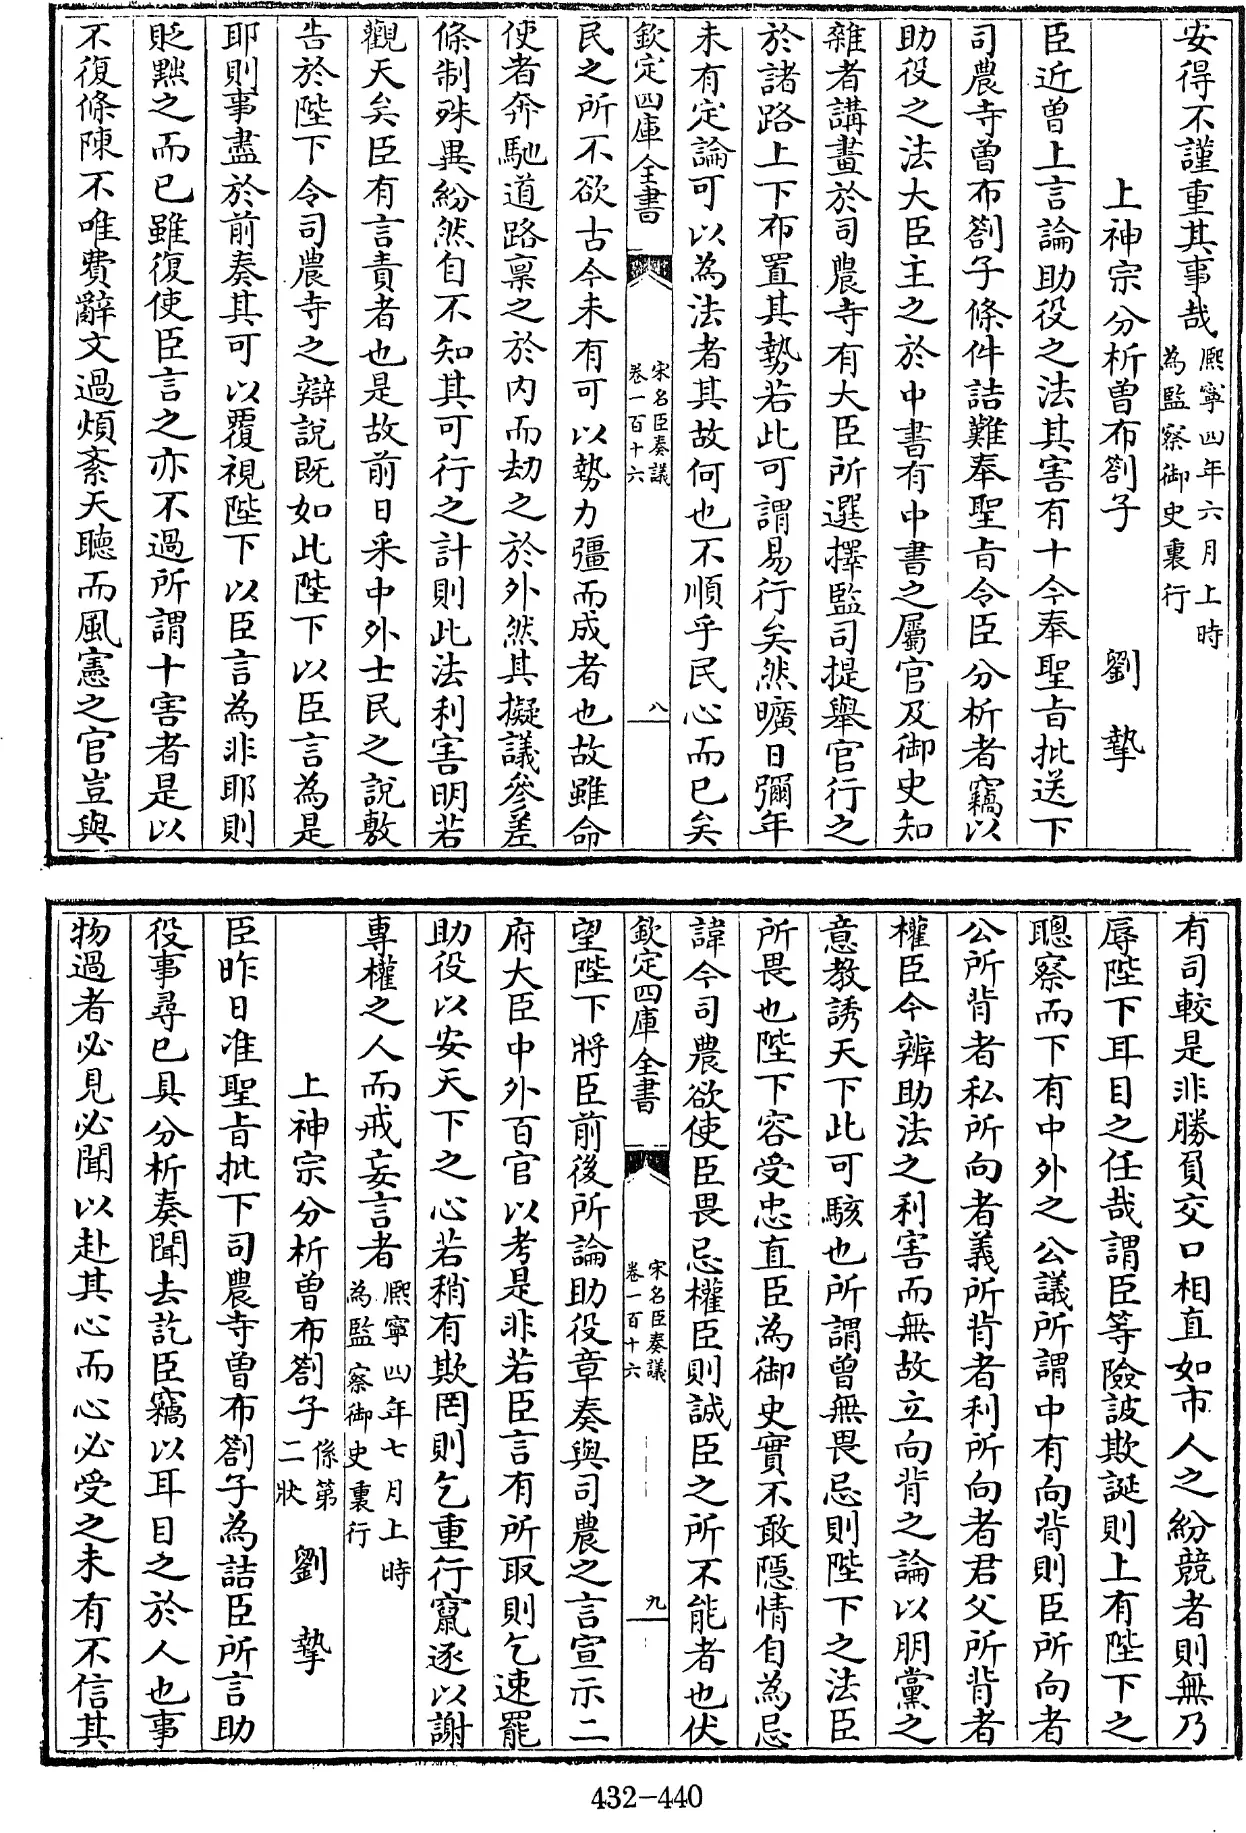 安得不謹重其事哉熈寧四年六月上時為監察御史裏行
上神宗分析曾布劄子　劉摯
臣近曾上言論助役之法其害有十今奉聖旨批送下
司農寺曾布劄子條件詰難奉聖旨令臣分析者竊以
助役之法大臣主之於中書有中書之屬官及御史知
雜者講畫於司農寺有大臣所選擇監司提舉官行之
於諸路上下布置其勢若此可謂易行矣然曠日彌年
未有定論可以為法者其故何也不順乎民心而已矣
欽定四庫全書　宋名臣奏議卷一百十六　八
民之所不欲古今未有可以勢力彊而成者也故雖命
使者奔馳道路稟之於内而劫之於外然其擬議參差
條制殊異紛然自不知其可行之計則此法利害明若
觀天矣臣有言責者也是故前日采中外士民之說敷
告於陛下令司農寺之辯說既如此陛下以臣言為是
耶則事盡於前奏其可以覆視陛下以臣言為非耶則
貶黜之而已雖復使臣言之亦不過所謂十害者是以
不復條陳不唯費辭文過煩紊天聽而風憲之官豈與
有司較是非勝負交口相直如市人之紛競者則無乃
辱陛下耳目之任哉謂臣等險詖欺誕則上有陛下之
聰察而下有中外之公議所謂中有向背則臣所向者
公所背者私所向者義所背者利所向者君父所背者
權臣今辨助法之利害而無故立向背之論以朋黨之
意教誘天下此可駭也所謂曾無畏忌則陛下之法臣
所畏也陛下容受忠直臣為御史實不敢隱情自為忌
諱今司農欲使臣畏忌權臣則誠臣之所不能者也伏
欽定四庫全書　宋名臣奏議卷一百十六　九
望陛下將臣前後所論助役章奏與司農之言宣示二
府大臣中外百官以考是非若臣言有所取則乞速罷
助役以安天下之心若稍有欺罔則乞重行竄逐以謝
專權之人而戒妄言者熈寧四年七月上時為監察御史裏行
上神宗分析曾布劄子係第二狀　劉摯
臣昨日准聖旨批下司農寺曾布劄子為詰臣所言助
役事尋已具分析奏聞去訖臣竊以耳目之於人也事
物過者必見必聞以赴其心而心必受之未有不信其
432-440